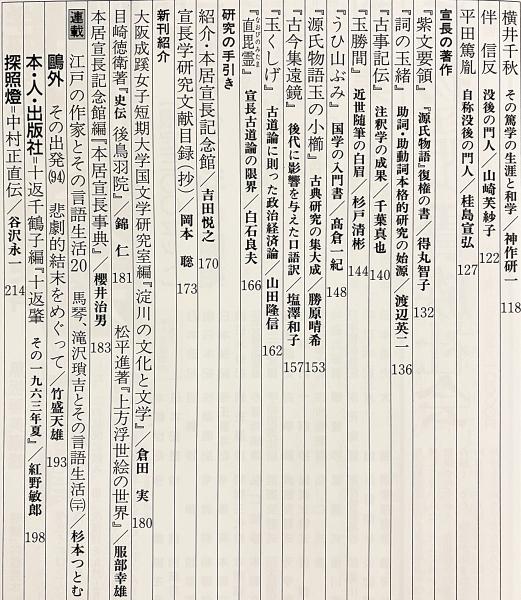 横井千秋 その篤学の生涯と和学/神作研一 118
伴 信友 没後の門人/山崎芙紗子 122
平田篤胤 自称没後の門人/桂島宣弘 127
宣長の著作
『紫文要領』 『源氏物語』復権の書/得丸智子 132
『詞の玉緒』 助詞・助動詞本格的研究の始源/渡辺英二 136
『古事記伝』 注釈学の成果/千葉真也 140
『玉勝間』 近世随筆の白眉/杉戸清彬 144
『うひ山ぶみ』 国学の入門書/髙倉一紀 148
『源氏物語玉の小櫛』 古典研究の集大成/勝原晴希 153
『古今集遠鏡』 後代に影響を与えた口語訳/塩澤和子 157
『玉くしげ』 古道論に則った政治経済論/山田隆信 162
『直毘霊』 宣長古道論の限界/白石良夫 166
なおびのみたま
研究の手引き
紹介・本居宣長記念館/吉田悦之 170
宣長学研究文献目録（抄）/岡本 聡 173
新刊紹介
大阪成蹊女子短期大学国文学研究室編『淀川の文化と文学』/倉田 実 180
目崎徳衛著『史伝 後鳥羽院』/錦 仁 181 松平進著『上方浮世絵の世界』/服部幸雄
本居宣長記念館編『本居宣長事典』/櫻井治男 183
連載 江戸の作家とその言語生活20 馬琴、滝沢瑣吉とその言語生活㈡/杉本つとむ
鷗外 その出発(94) 悲劇的結末をめぐって/竹盛天雄 193
本・人・出版社=十返千鶴子編『十返肇 その一九六三年夏』/紅野敏郎 198
探照燈=中村正直伝/谷沢永一 214